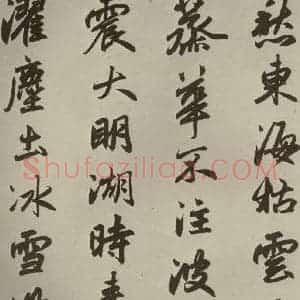 愁東海枯雲
蒸華不注波
震大明湖時來
濯塵土冰雪
Shufaziliao.COM